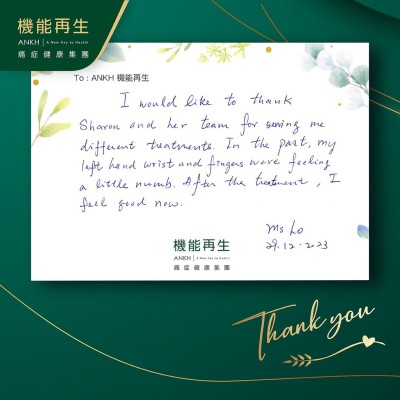 機能再生
ANKH | A New Key to Health
痛症健康集團
To : ANKH 機能再生
I would like to thank
Sharon and her team for serving me
different treatments. In the past, my
left hand wrist and fingers were feeling
a little numb. After the treatment, I
feel good now.
Ms Lo
29.12.2023
機能再生
ANKH | A New Key to Health
痛症健康集團
Thank you